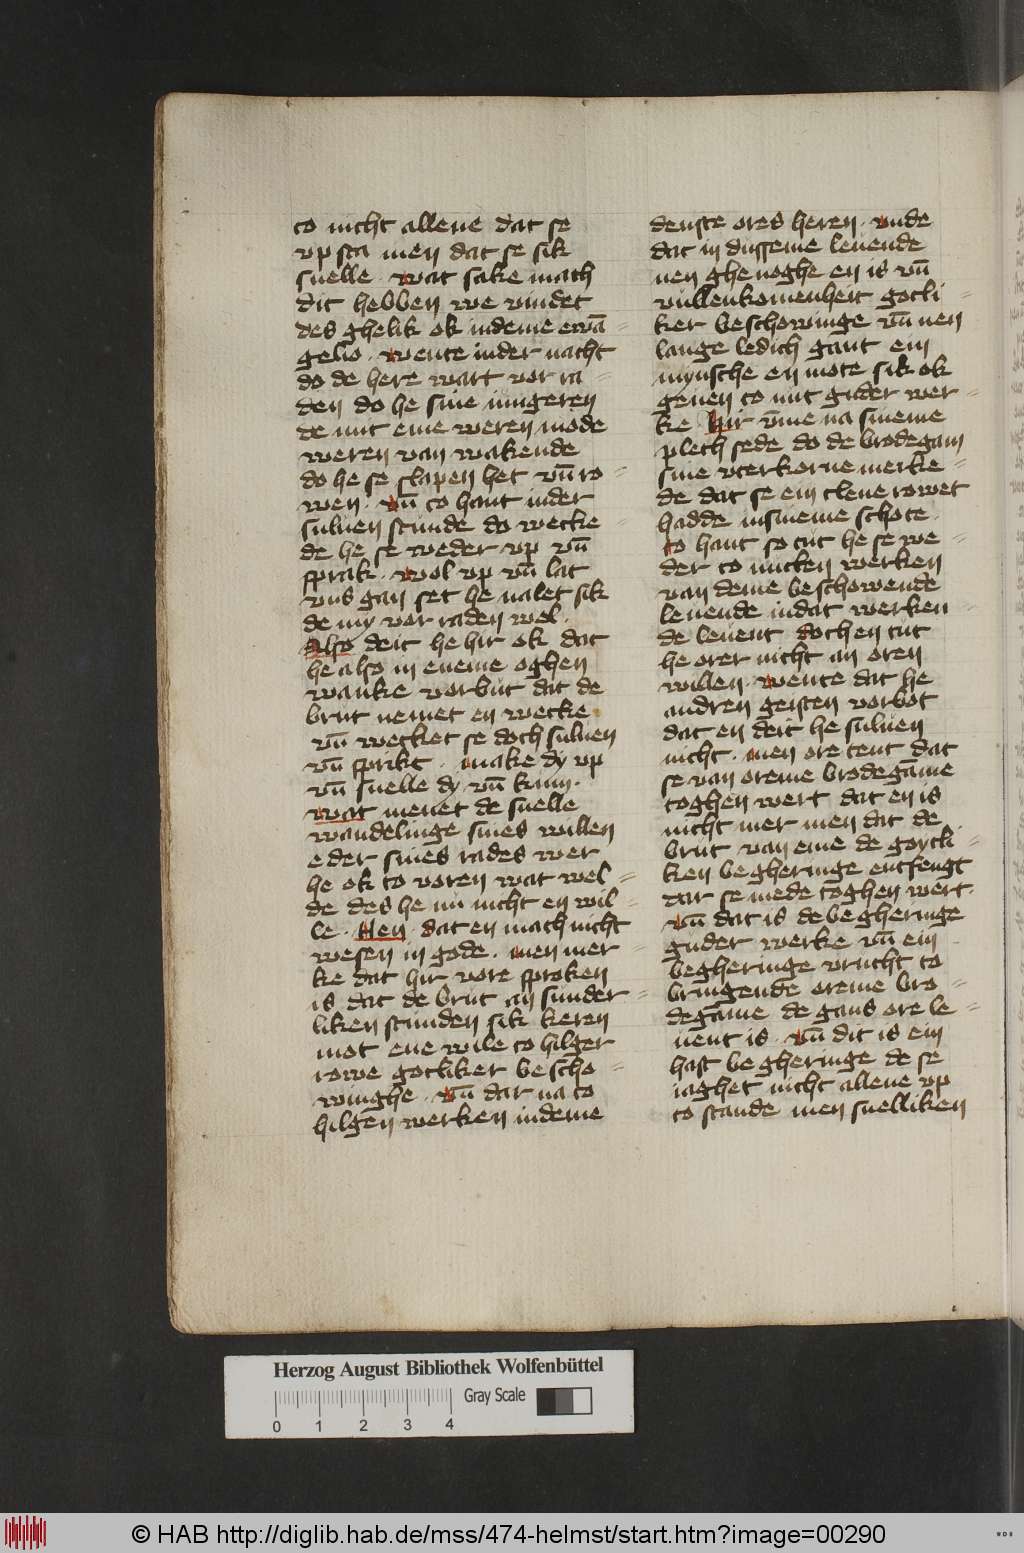 to nicht allene dat se
vp sta men dat se sik
snelle . wat sake mach
dit hebben we vindet
des ghelik ok indeme ewā
gelio . wente inder nacht
do de here wart vor ra
den do he sine iungeren
de mit eme weren mode
weren van wakende
do he se slapen het vn̄ ro
wen . vn̄ to hant inder
suluen stunde do wecke
de he se weder vp vn̄
sprak . wol vp vn̄ lat
vns gan set he nalet sik
de my vor raden wel .
Also deit he hir ok dat
he also in eneme oghen
wanke vorbut dat de
brut nemet en wecke
vn̄ wecket se doch suluen
vn̄ sprikt . make dy vp
vn̄ snelle dy vn̄ kum .
wat menet de snelle
wandelinge sines willen
eder sines rades wer
he ok to voren wat wel
de des he nu nicht en wil
le . Nen dat en mach nicht
wesen in gode . men mer
ke dat hir vore sproken
is dat de brut an sunder
liken stunden sik keren
mot ene wile to hilger
rowe gotliker bescho
winghe . vn̄ dar na to
hilgen werken indeme
denste ores heren . vnde
dat in dusseme leuende
nen ghenoghe en is vn̄
vullenkomenheit gotli
ker beschowinge vn̄ nen
lange ledich gant ein
mynsche en mote sik ok
geuen to mit guder wer
ke Hir vmme na sineme
plech sede do de brodegam
sine vterkorne merke
de dat se ein clene rowet
hadde insineme schote .
to hant so tut he se we
der to nutten werken
van deme beschowende
leuende indat werken
de leuent doch en tut
he orer nicht an oren
willen . wente dat he
andren geisten vorbot
dat en deit he suluen
nicht . men ore tent dat
se van oreme brodegāme
toghen wert dat en is
nicht mer men dat de
brut van eme de gotli
ken begheringe entfengt
dar se mede toghen wert
vn̄ dat is de begheringe
guder werke vn̄ ein
begheringe vrucht to
bringende oreme bro
degāme de gans ore le
uent is . vn̄ dit is ein
hast begheringe de se
iaghet nicht allene vp
to stande men snelliken
Herzog August Bibliothek Wolfenbüttel
Gray Scale
0 1 2 3 4
© HAB http://diglib.hab.de/mss/474-helmst/start.htm?image=00290